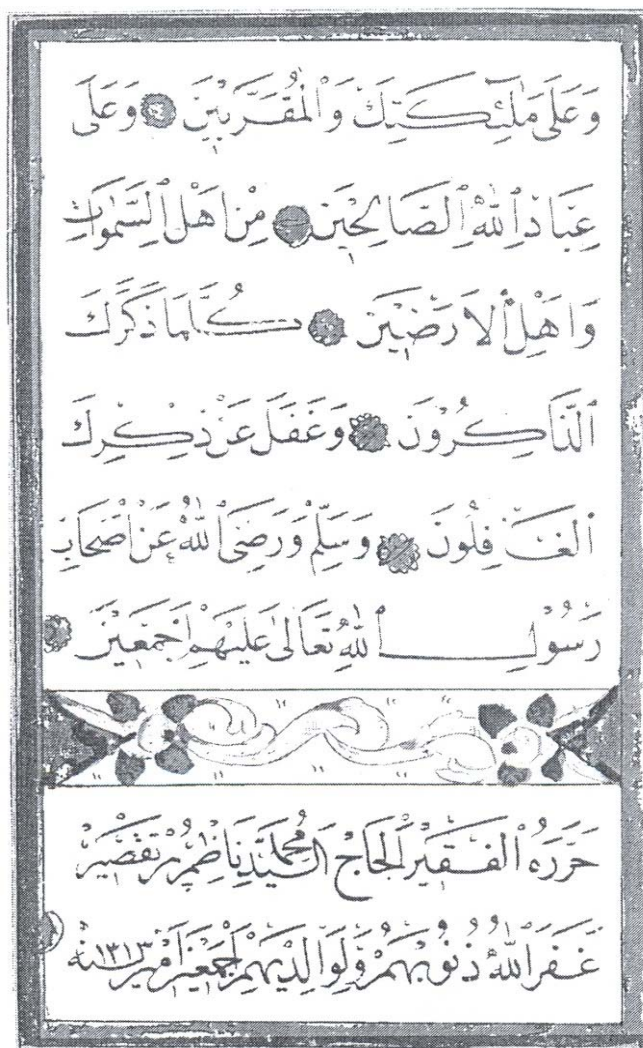 وَعَلَى مَلٰٓئِكَتِكَ وَالْمُقَرَّبِيْنَ وَعَلَى
عِبَادِ اللّٰهِ الصَّالِحِيْنَ مِنْ اَهْلِ السَّمٰوَاتِ
وَاَهْلِ الْاَرَضِيْنَ كُلَّمَا ذَكَرَكَ
الذَّاكِرُوْنَ وَغَفَلَ عَنْ ذِكْرِكَ
الْغَافِلُوْنَ وَسَلِّمْ وَرَضِيَ اللّٰهُ عَنْ اَصْحَابِ
رَسُوْلِ اللّٰهِ تَعَالٰى عَلَيْهِمْ اَجْمَعِيْنَ
حَرَّرَهُ الْفَقِيْرُ الْحَاجْ السَّيِّدْ مُحَمَّدْ نَاظِمْ
غَفَرَ اللّٰهُ ذُنُوْبَهُمْ وَلِوَالِدَيْهِمْ اَجْمَعِيْنَ اٰمِيْنَ سنه ١٣١٣